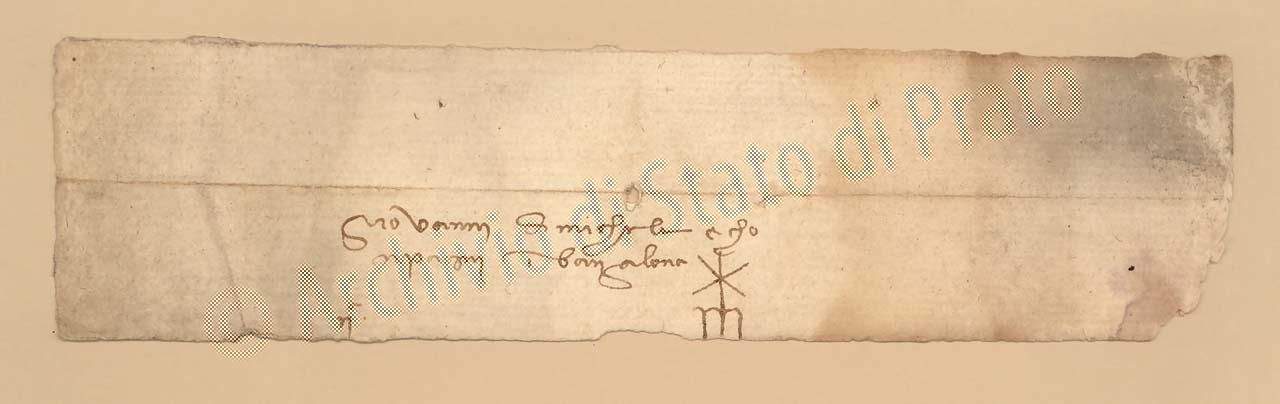 Giovanni di michele e cho
npagni in barzalona
© Archivio di Stato di Prato